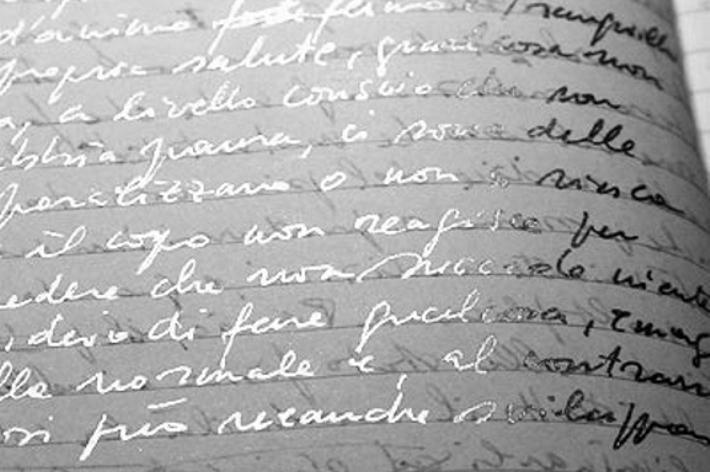 d'animo fermo e tranquillo
propria salute, qualcosa non
a livello conscio che non
bbia paura, ci sono delle
paralizzano o non si riesca
il corpo non reagisce per
edere che non succeda niente
, devo di fare qualcosa,
lla normale è, al contrar
si può neanche sviluppa